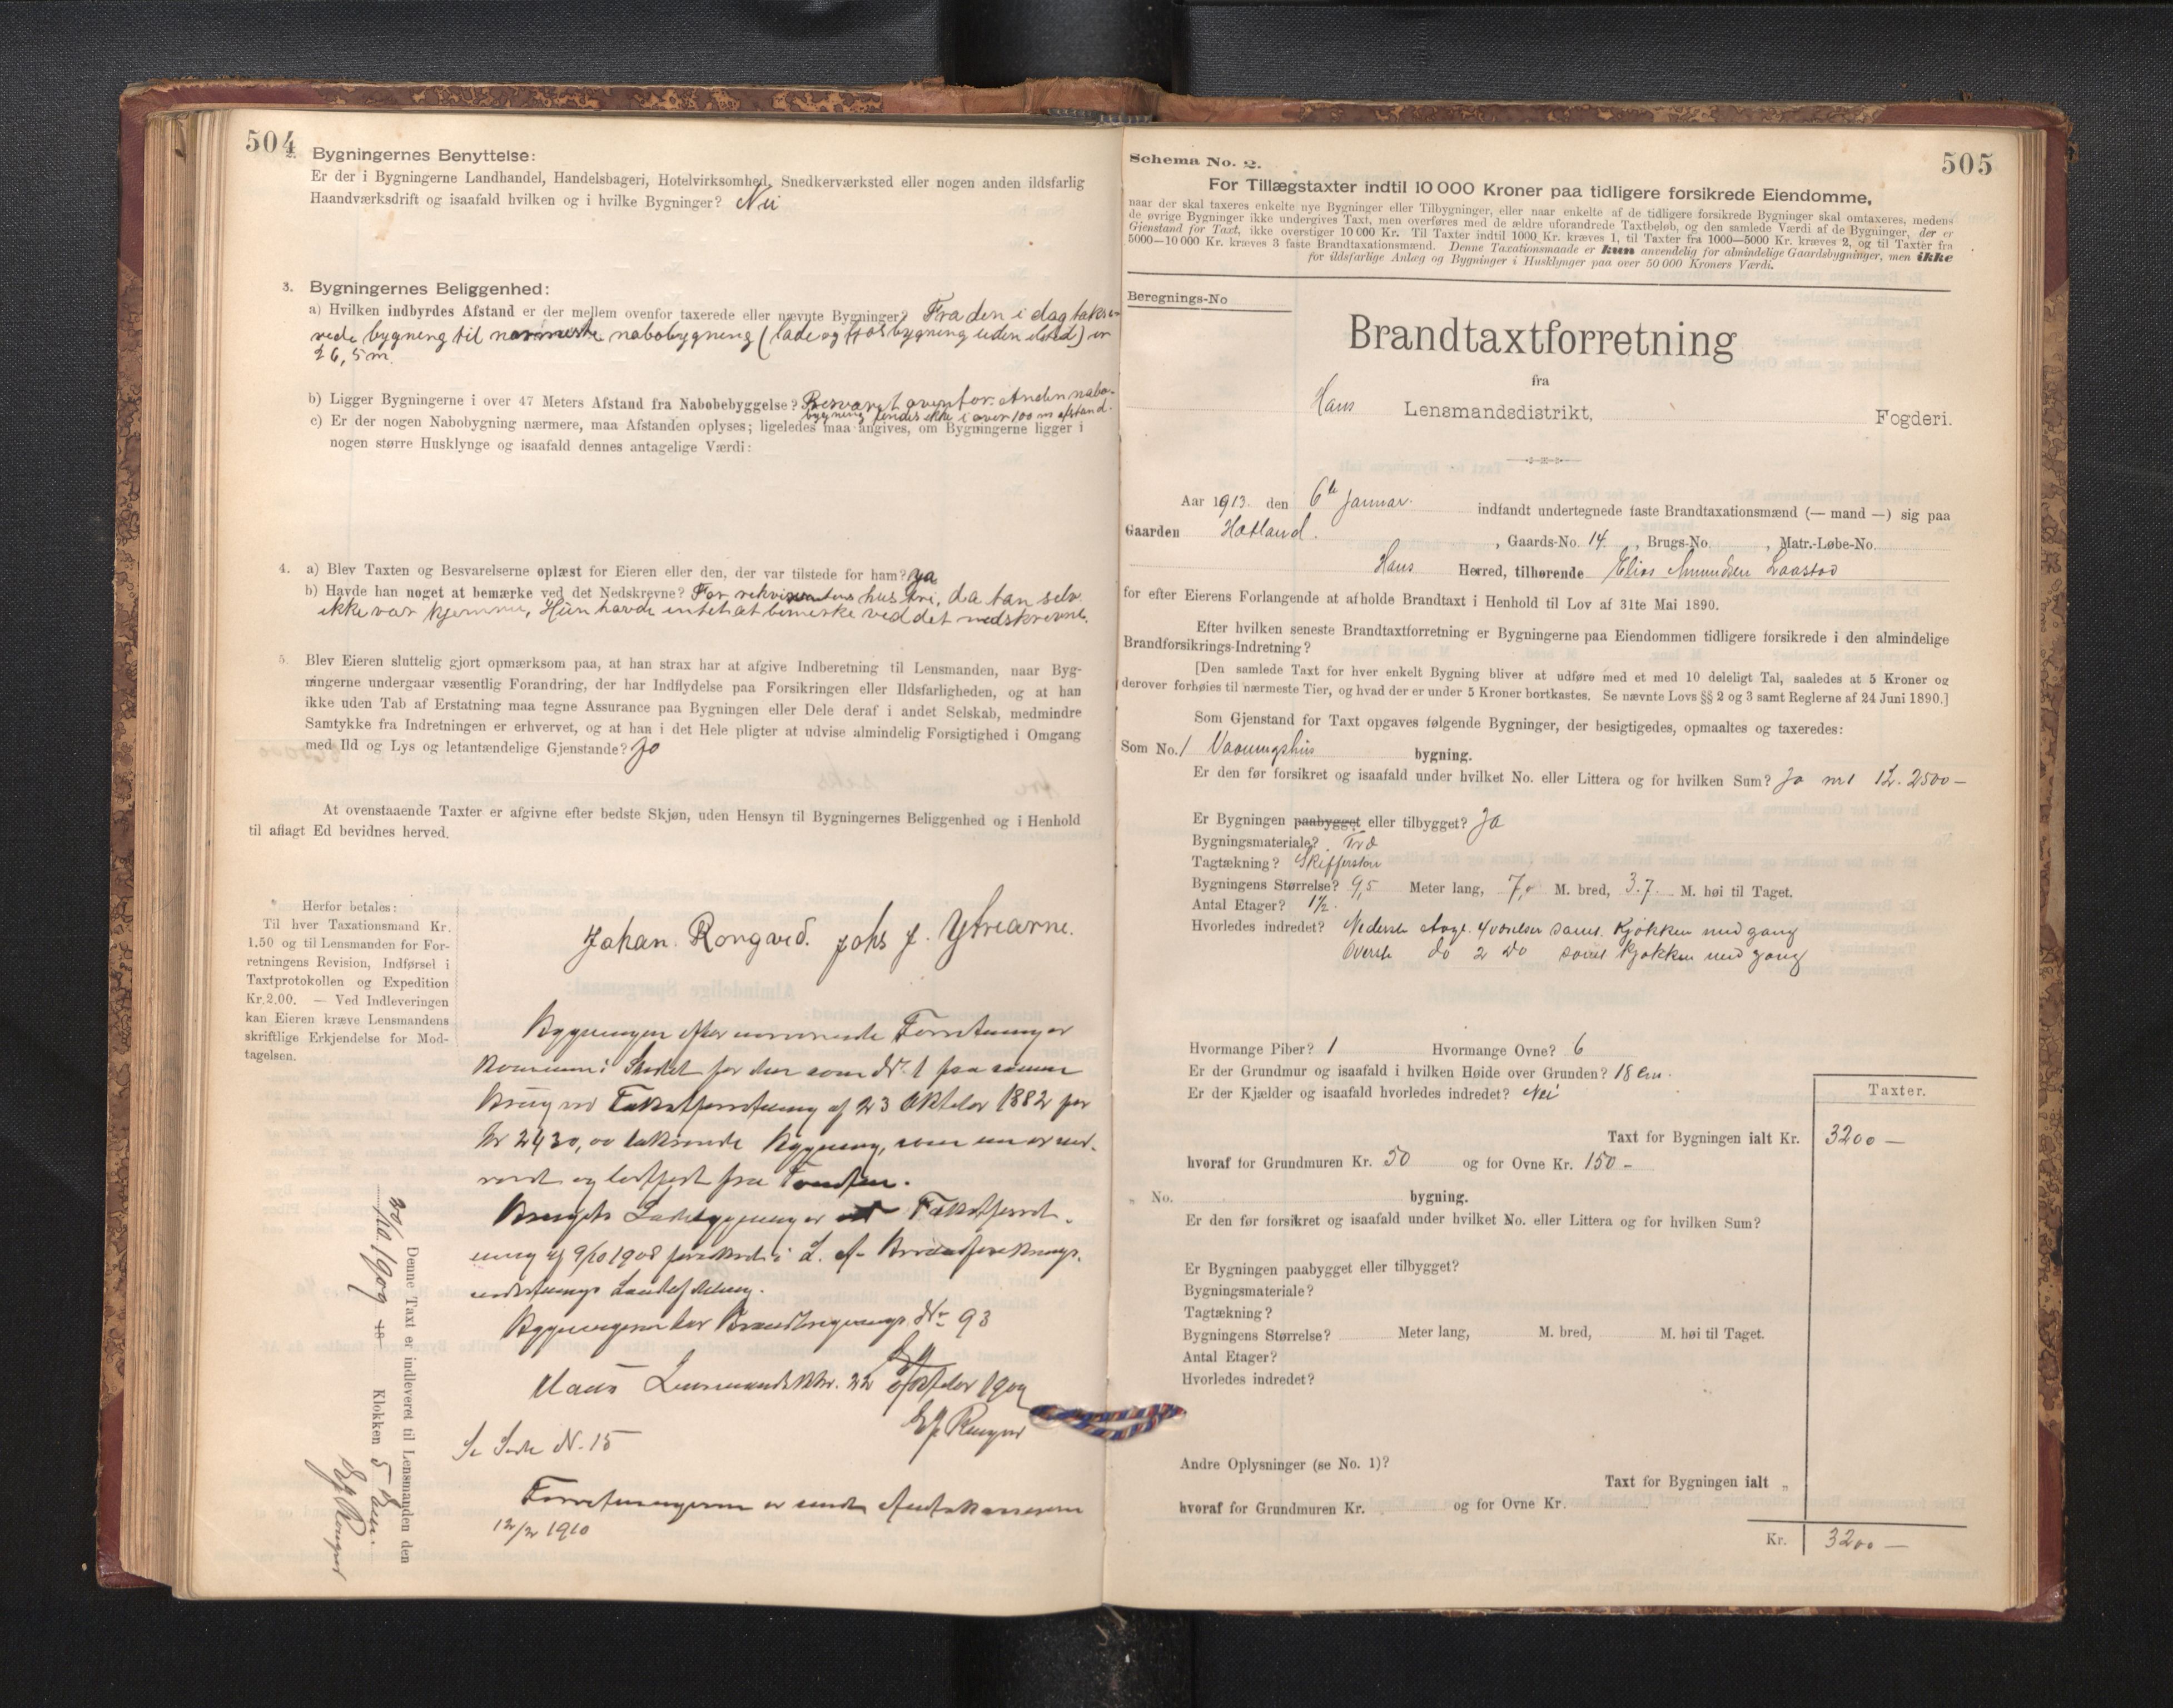 504
2. Bygningernes Benyttelse:
Er der i Bygningerne Landhandel, Handelsbageri, Hotelvirksomhed, Snedkerværksted eller nogen anden ildsfarlig
Haandværksdrift og isaafald hvilken og i hvilke Bygninger? Nei
3. Bygningernes Beliggenhed:
a) Hvilken indbyrdes Afstand er der mellem ovenfor taxerede eller nævnte Bygninger? Fra den i dag takse-
rede bygning til nærmeste nabobygning (lade og fjøsbygning uden ildsted) er
26,5 m.
b) Ligger Bygningerne i over 47 Meters Afstand fra Nabobebyggelse? Besvaret ovenfor. Anden nabo-
bygning findes ikke i over 100 m afstand.
c) Er der nogen Nabobygning nærmere, maa Afstanden oplyses; ligeledes maa angives, om Bygningerne ligger i
nogen større Husklynge og isaafald dennes antagelige Værdi:
4. a) Blev Taxten og Besvarelserne oplæst for Eieren eller den, der var tilstede for ham? Ja
b) Havde han noget at bemærke ved det Nedskrevne? For rekvirentens hustru, da han selv
ikke var hjemme, Hun havde intet at bemerke ved det nedskrevne.
5. Blev Eieren sluttelig gjort opmærksom paa, at han strax har at afgive Indberetning til Lensmanden, naar Byg-
ningerne undergaar væsentlig Forandring, der har Indflydelse paa Forsikringen eller Ildsfarligheden, og at han
ikke uden Tab af Erstatning maa tegne Assurance paa Bygningen eller Dele deraf i andet Selskab, medmindre
Samtykke fra Indretningen er erhvervet, og at han i det Hele pligter at udvise almindelig Forsigtighed i Omgang
med Ild og Lys og letantændelige Gjenstande? Jo
At ovenstaaende Taxter er afgivne efter bedste Skjøn, uden Hensyn til Bygningernes Beliggenhed og i Henhold
til aflagt Ed bevidnes herved.
Herfor betales:
Til hver Taxationsmand Kr.
1.50 og til Lensmanden for For-
retningens Revision, Indførsel i
Taxtprotokollen og Expedition
Kr. 2.00. — Ved Indleveringen
kan Eieren kræve Lensmandens
skriftlige Erkjendelse for Mod-
tagelsen.
Johan Rongved. Johs J. Ytrearne.
Bygningen efter nærværende Forretning er
kommen i Stedet for den som No 1 paa samme
Brug ved Takstforretning af 23 Oktober 1882 for
Kr 2430,00 takserede Bygning, som nu er ned-
revet og bortført fra Tomten.
Brugets Ladebygning er ved Takstforret-
ning af 9/10 1908 forsikret i L. A. Brandforsikrings-
indretnings Landafdeling.
Bygningerne har Brandtegnings No 93
Haus Lensmandsktr. 22 Oktober 1909
Se Side No. 15
Forretningerne er sendt Amtskassereren
12/2 1910
Denne Taxt er indleveret til Lensmanden den
23/10 1909 18 Klokken 5 Em.
505
Schema No. 2.
For Tillægstaxter indtil 10 000 Kroner paa tidligere forsikrede Eiendomme,
naar der skal taxeres enkelte nye Bygninger eller Tilbygninger, eller naar enkelte af de tidligere forsikrede Bygninger skal omtaxeres, medens
de øvrige Bygninger ikke undergives Taxt, men overføres med de ældre uforandrede Taxtbeløb, og den samlede Værdi af de Bygninger, der er
Gjenstand for Taxt, ikke overstiger 10 000 Kr. Til Taxter indtil 1000 Kr. kræves 1, til Taxter fra 1000—5000 Kr. kræves 2, og til Taxter fra
5000—10 000 Kr. kræves 3 faste Brandtaxationsmænd. Denne Taxationsmaade er kun anvendelig for almindelige Gaardsbygninger, men ikke
for ildsfarlige Anlæg og Bygninger i Husklynger paa over 50 000 Kroners Værdi.
Beregnings-No
Brandtaxtforretning
fra
Haus Lensmandsdistrikt, Fogderi.
Aar 1913. den 6te Januar. indfandt undertegnede faste Brandtaxationsmænd (— mand —) sig paa
Gaarden Hatland. , Gaards-No. 14. , Brugs-No. , Matr.-Løbe-No.
Haus Herred, tilhørende Elias Amundsen Laastad
for efter Eierens Forlangende at afholde Brandtaxt i Henhold til Lov af 31te Mai 1890.
Efter hvilken seneste Brandtaxtforretning er Bygningerne paa Eiendommen tidligere forsikrede i den almindelige
Brandforsikrings-Indretning?
[Den samlede Taxt for hver enkelt Bygning bliver at udføre med et med 10 deleligt Tal, saaledes at 5 Kroner og
derover forhøies til nærmeste Tier, og hvad der er under 5 Kroner bortkastes. Se nævnte Lovs §§ 2 og 3 samt Reglerne af 24 Juni 1890.]
Som Gjenstand for Taxt opgaves følgende Bygninger, der besigtigedes, opmaaltes og taxeredes:
Som No. 1 Vaaningshus bygning.
Er den før forsikret og isaafald under hvilket No. eller Littera og for hvilken Sum? Ja nr 1 2500 —
Er Bygningen paabygget eller tilbygget? Ja
Bygningsmateriale? Træ
Tagtækning? Skiffersten
Bygningens Størrelse? 9,5 Meter lang, 7,0 M. bred, 3.7. M. høi til Taget.
Antal Etager? 1½.
Hvorledes indredet? Nederste Etage. 4 værelser samt Kjøkken med gang
Øverste do 2 Do samt Kjøkken med gang
Hvormange Piber? 1 Hvormange Ovne? 6
Er der Grundmur og isaafald i hvilken Høide over Grunden? 18 cm.
Er der Kjælder og isaafald hvorledes indredet? Nei
Taxter.
Taxt for Bygningen ialt Kr. 3200 —
hvoraf for Grundmuren Kr. 50 og for Ovne Kr. 150 —
„ No. bygning.
Er den før forsikret og isaafald under hvilket No. eller Littera og for hvilken Sum?
Er Bygningen paabygget eller tilbygget?
Bygningsmateriale?
Tagtækning?
Bygningens Størrelse? Meter lang, M. bred, M. høi til Taget.
Antal Etager?
Hvorledes indredet?
Andre Oplysninger (se No. 1)?
Taxt for Bygningen ialt „
hvoraf for Grundmuren Kr. og for Ovne Kr.
Kr. 3200 —